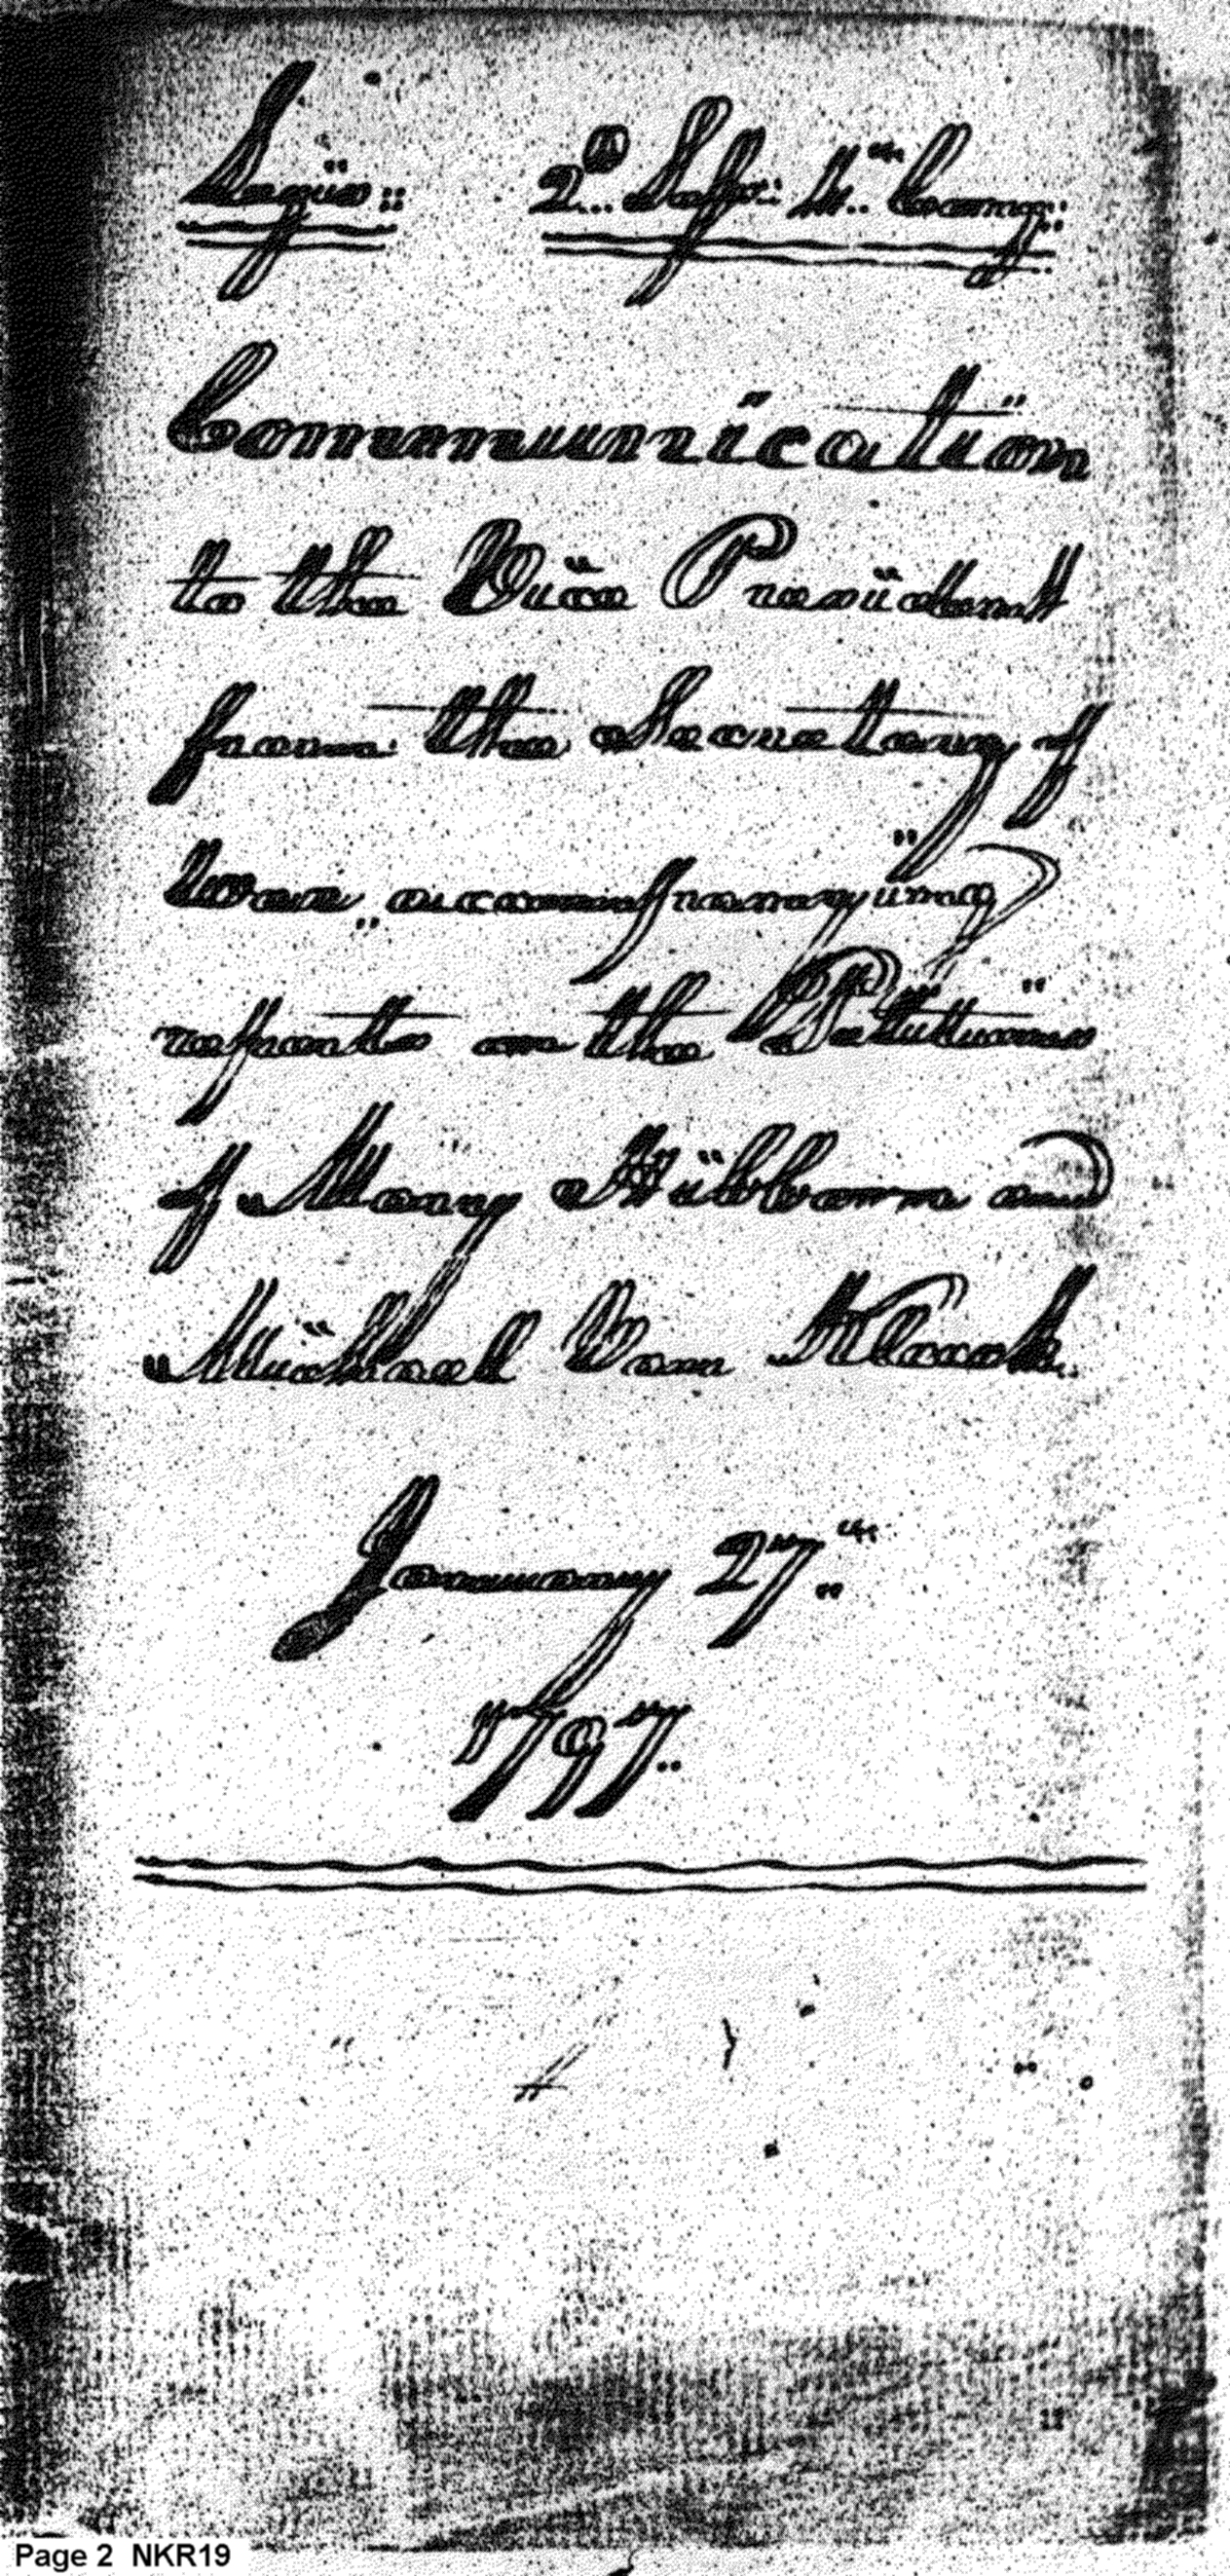 Legis:: 2d.. Sess: 4..th Cong::
Communication
to the Vice President
from the Secretary of
War, accompanying
reports on the Petitions
of Mary Hibborn and
Michael Van Kleeck.
January 27..th
1797..
Page 2 NKR19